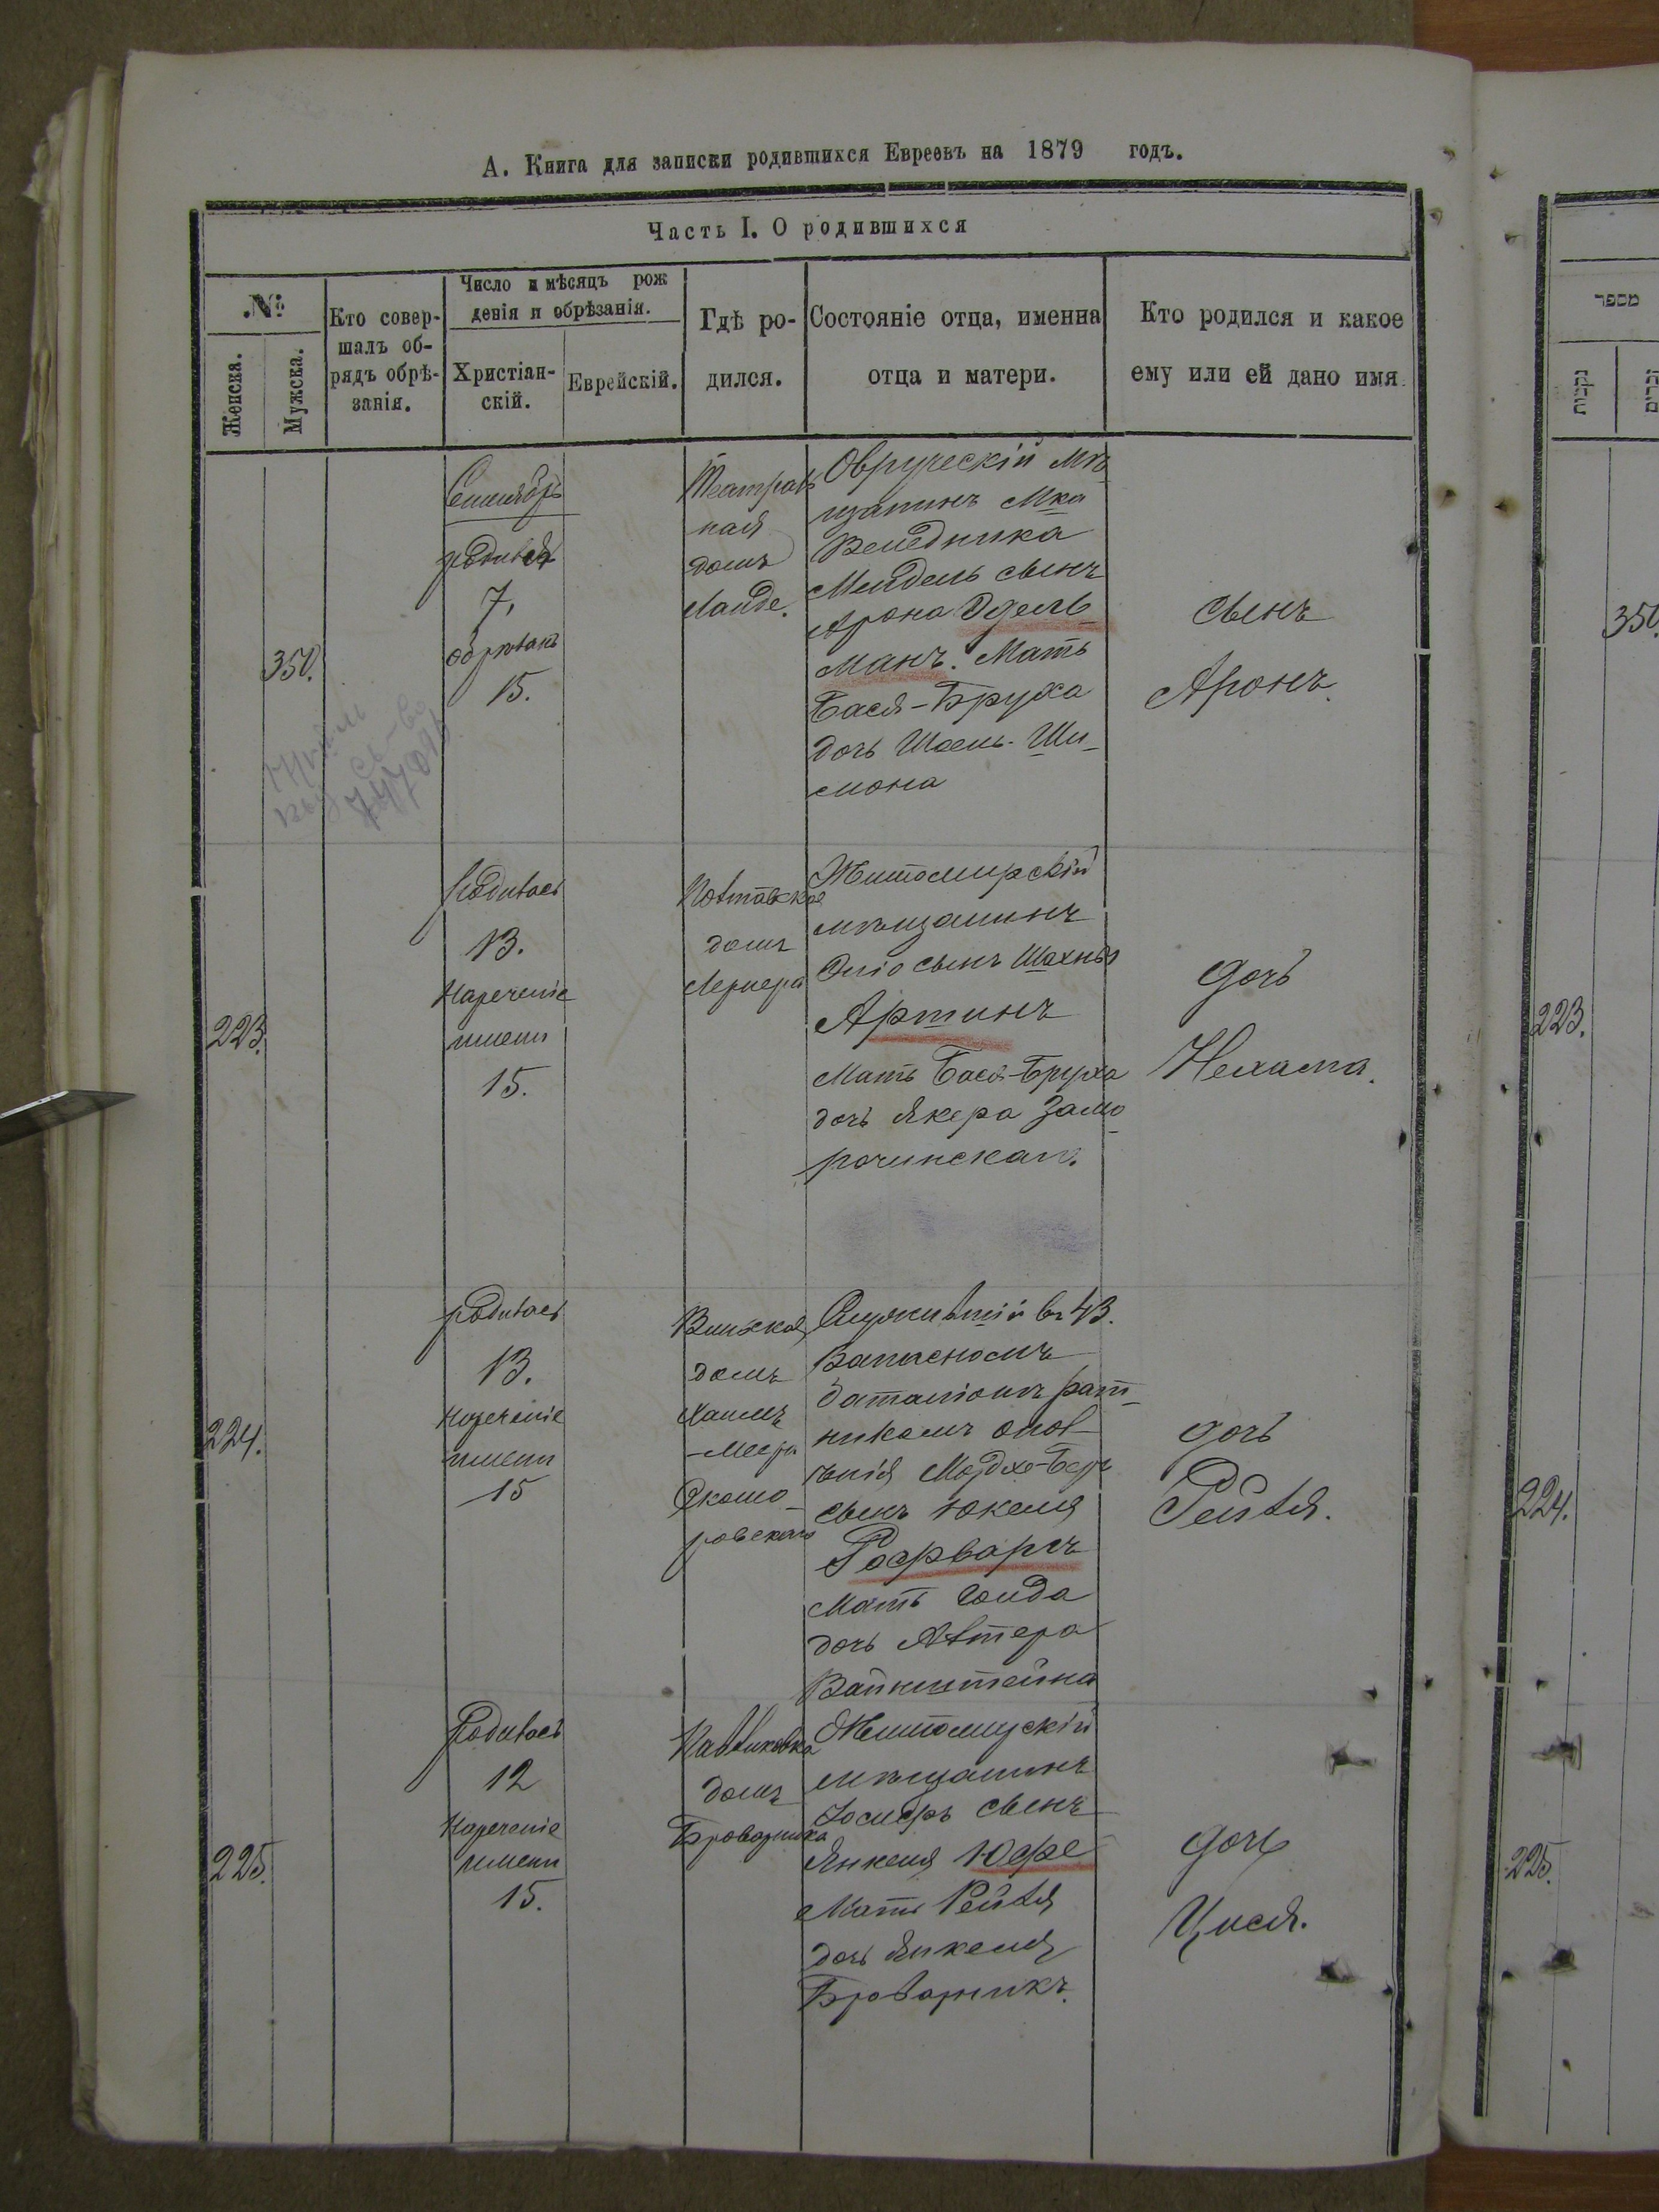 А. Книга для записки родившихся Евреевъ на 1879 годъ.
Часть I. О родившихся
№
Женска.
Мужска.
Кто совер-
шалъ об-
рядъ обрѣ-
занія.
Число и мѣсяцъ рож
денія и обрѣзанія.
Христіан-
скій.
Еврейскій.
Гдѣ ро-
дился.
Состояніе отца, именна
отца и матери.
Кто родился и какое
ему или ей дано имя
350.
Сентябрь
родился
7.
обрѣзанъ
15.
Театраль
ная
домъ
Ланде.
Овручскій мѣ
щанинъ Мка
Веледника
Мендель сынъ
Арона Эдель-
манъ. Мать
Бася-Бруха
дочь Шаель-Ши-
мона
сынъ
Аронъ.
223.
Родилась
13.
Нареченіе
имени
15.
домъ
Лернера
Житомирскій
мѣщанинъ
Эліо сынъ Шахны
Артинъ
Мать Бася-Бруха
дочь Якера
дочь
Нехама.
224.
родилась
13.
нареченіе
имени
15
домъ
Хаимъ
-Меера
Скомо-
ровскаго
Служившій въ 43.
Запасномъ
баталіонѣ рат-
никомъ опол-
ченія Мордхо-Беръ
сынъ Юкеля
Рофваргъ
Мать Голда
дочь Алтера
Вайнштейна
дочь
Рейзля.
225.
Родилась
12
Нареченіе
имени
15.
Павликовка
домъ
Броварника
Житомирскій
мѣщанинъ
Іосифъ сынъ
Янкеля Юфе
Мать Рейзля
дочь Янкеля
Броварникъ.
дочь
Цися.
מספר
נקבות
זכרים
350.
223.
224.
225.